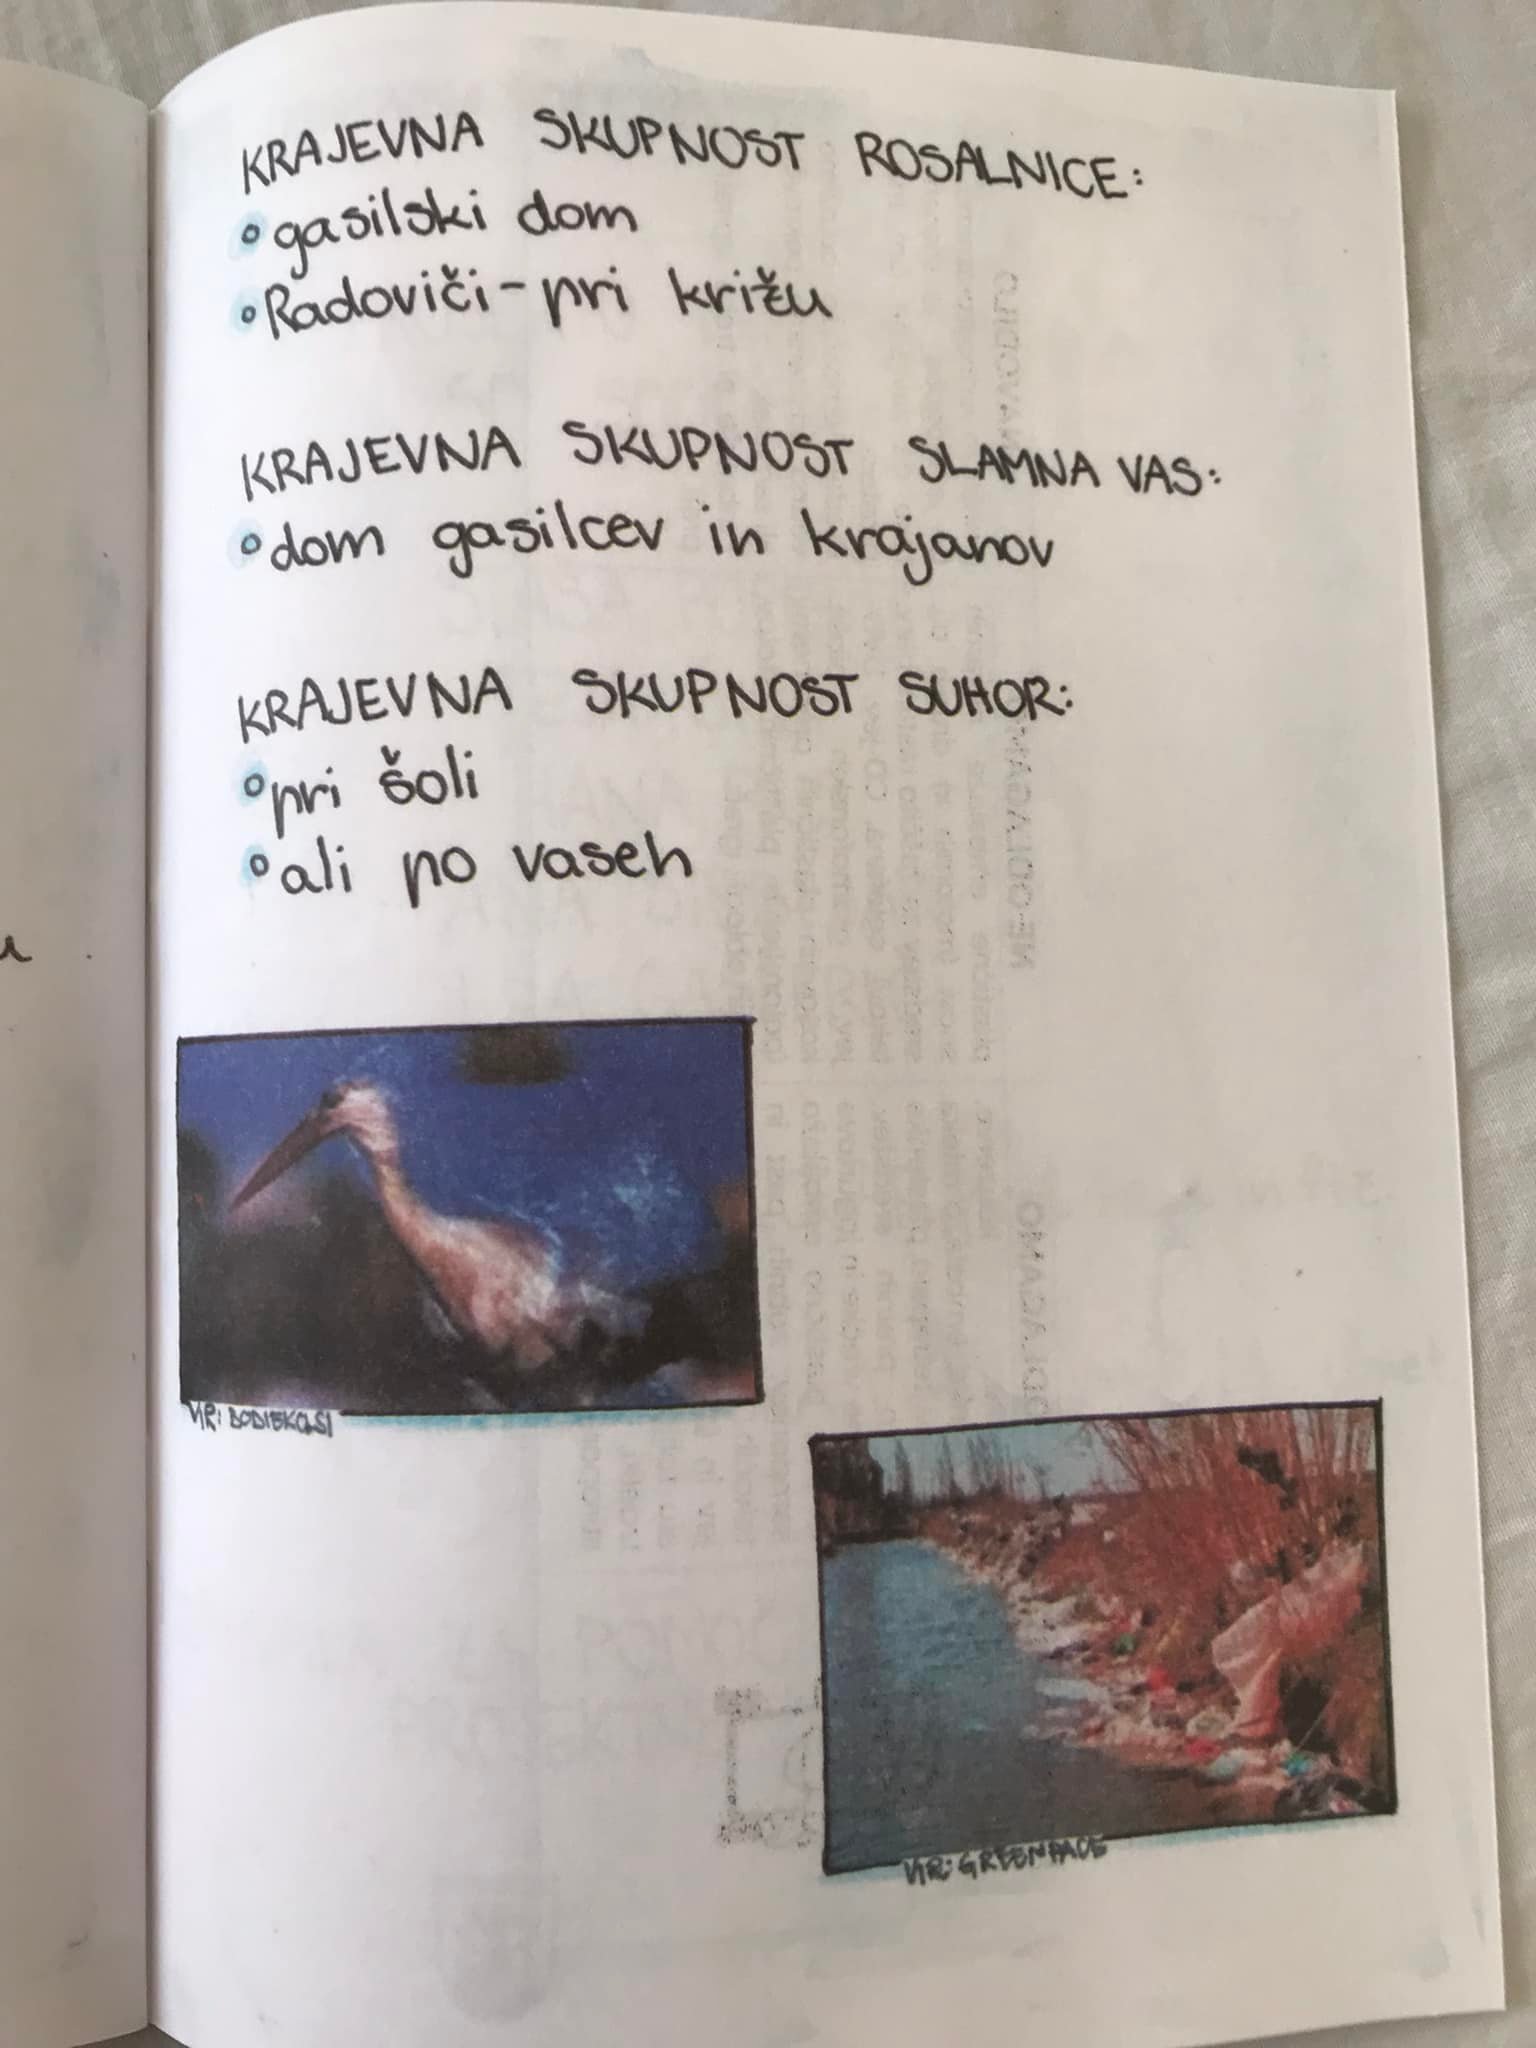 KRAJEVNA SKUPNOST ROSALNICE:
gasilski dom
Radoviči - pri križu
KRAJEVNA SKUPNOST SLAMNA VAS:
dom gasilcev in krajanov
KRAJEVNA SKUPNOST SUHOR:
pri šoli
ali po vaseh
VIR: BODIEKO.SI
VIR: GREENPACE